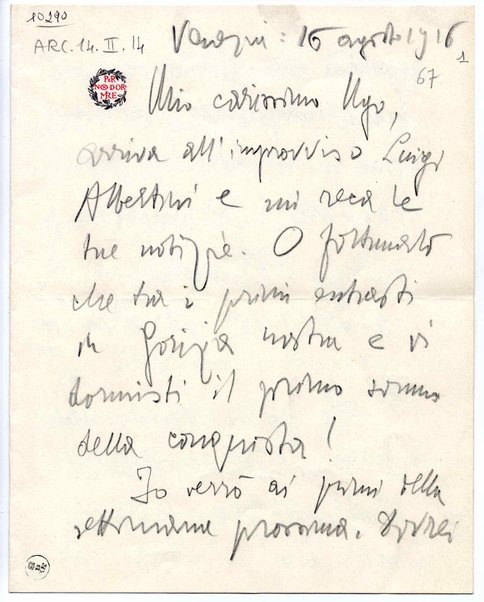 10290
ARC. 14. II. 14
Venezia: 16 agosto 1916
1
67
PER
NON DOR
MIRE
Mio carissimo Ugo,
arriva all'improvviso Luigi
Albertini e mi reca le
tue notizie. O fortunato
che tra i primi entrasti
in Gorizia nostra e vi
dormisti il primo sonno
della conquista!
Io verrò ai primi della
settimana prossima. Vorrei